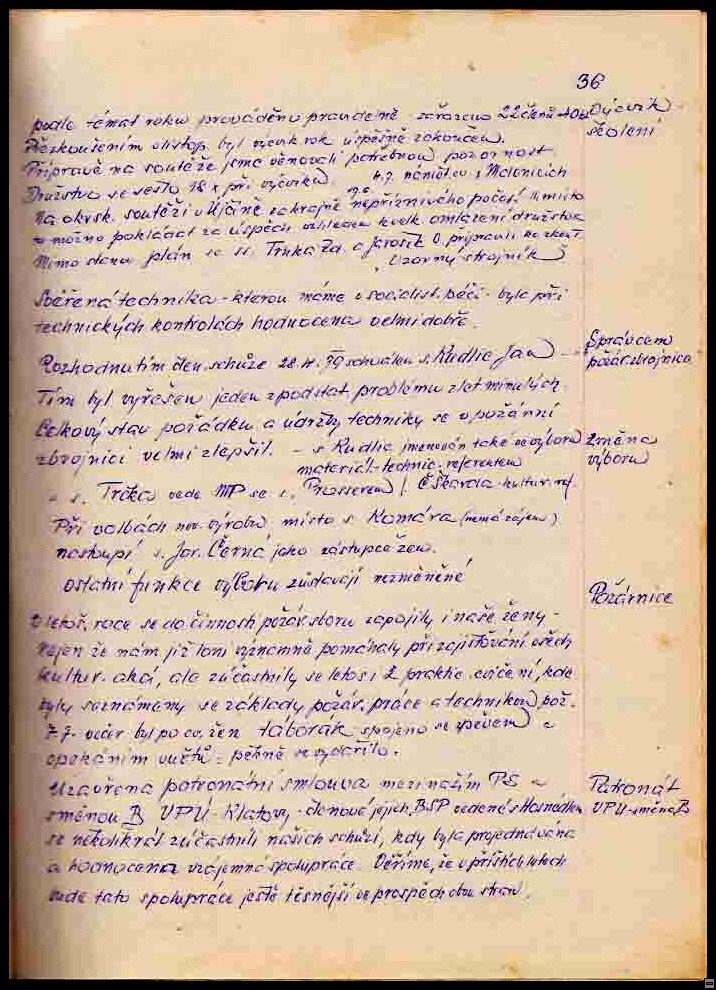 36
podle témat roku prováděno pravidelně - zařazeno 22 členů
Výcvik
školení
Přezkoušením v listop. byl výcvik. rok úspěšně zakončen.
Přípravě na soutěže jsme věnovali potřebnou pozornost
Družstvo se sešlo 18 x při výcviku. 4.7. námětov. s Malonicích
Na okrsk. soutěži v Újčíně za krajně nepříznivého počasí II. místo
je možno pokládat za úspěch vzhledem k velk. omlazení družstva
Mimo stanov. plán se ss. Trnka Zd. a Jarošík O. připravili na zkoušk.
Vzorný strojník
Svěřená technika - kterou máme v socialist. péči - byla při
technických kontrolách hodnocena velmi dobře.
Rozhodnutím člen. schůze 28.4.79 schválen s. Rudlic Jan
Správcem
požár. zbrojnice
Tím byl vyřešen jeden z podstat. problémů z let minulých.
Celkový stav pořádku a údržby techniky se v požární
zbrojnici velmi zlepšil. - s Rudlic jmenován také ve výboru
Změna
výboru
materiál-technic. referentem
" s. Trčka vede MP se s. Prosserem / Č Škarda kultur. ref.
Při volbách nov. výboru místo s Komára (nemá zájem)
nastoupí s. Jar. Černá jako zástupce žen.
ostatní funkce výboru zůstávají nezměněné
Požárnice
V letoš. roce se do činnosti požár. sboru zapojily i naše ženy -
Nejen že nám již loni významně pomáhaly při zajišťování všech
kultur. akcí, ale zúčastnily se letos i 2 praktic. cvičení, kde
byly seznámeny se základy požár. práce a technikou pož.
7.7. večer byl po cv. žen táborák spojeno se zpěvem a
opékáním vuřtů - pěkně se vydařilo.
Uzavřena patronátní smlouva mezi naším PS a
Patronát
VPÚ - směna B
směnou B VPÚ - Klatovy - členové jejich BSP vedené s Hosnédlem
se několikrát zúčastnili našich schůzí, kdy byla projednávána
a hodnocena vzájemná spolupráce. Věříme, že v příštích letech
bude tato spolupráce ještě těsnější ve prospěch obou stran.